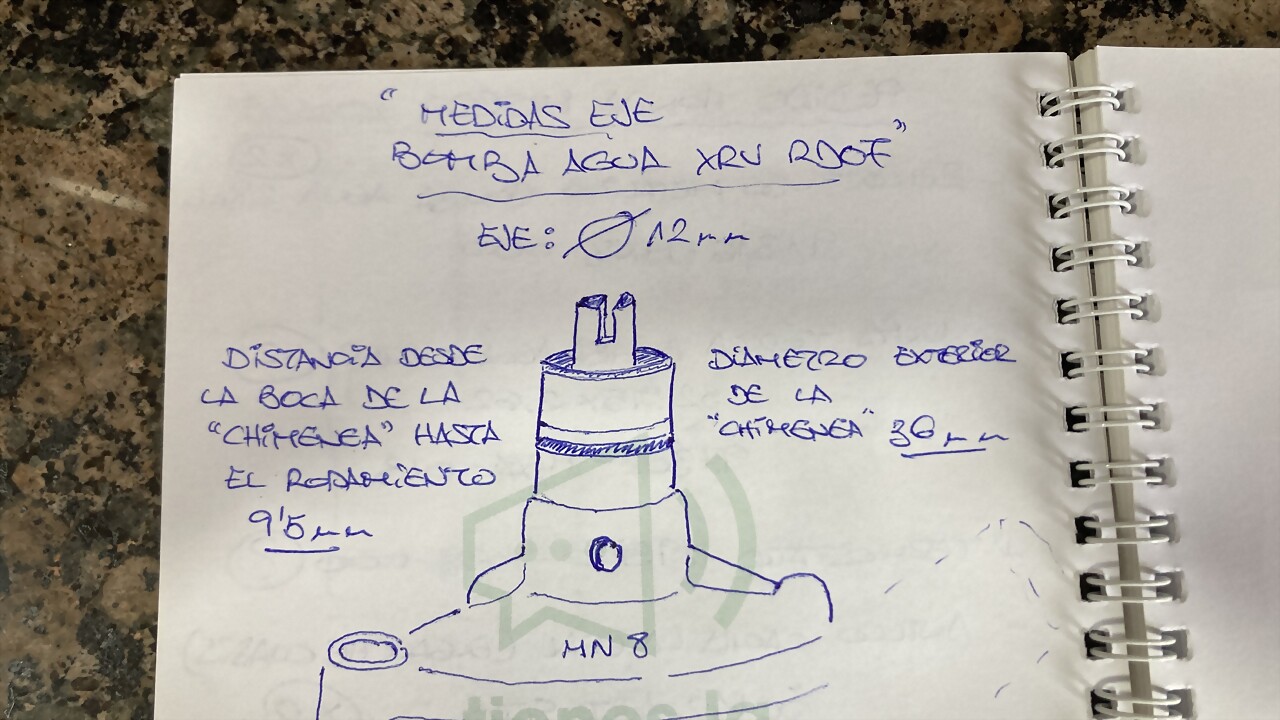 "MEDIDAS EJE
BOMBA AGUA XRV RD07"
EJE: Ø 12mm
DISTANCIA DESDE
LA BOCA DE LA
"CHIMENEA" HASTA
EL RODAMIENTO
9'5mm
DIAMETRO EXTERIOR
DE LA
"CHIMENEA" 36mm
MN 8
tienes la